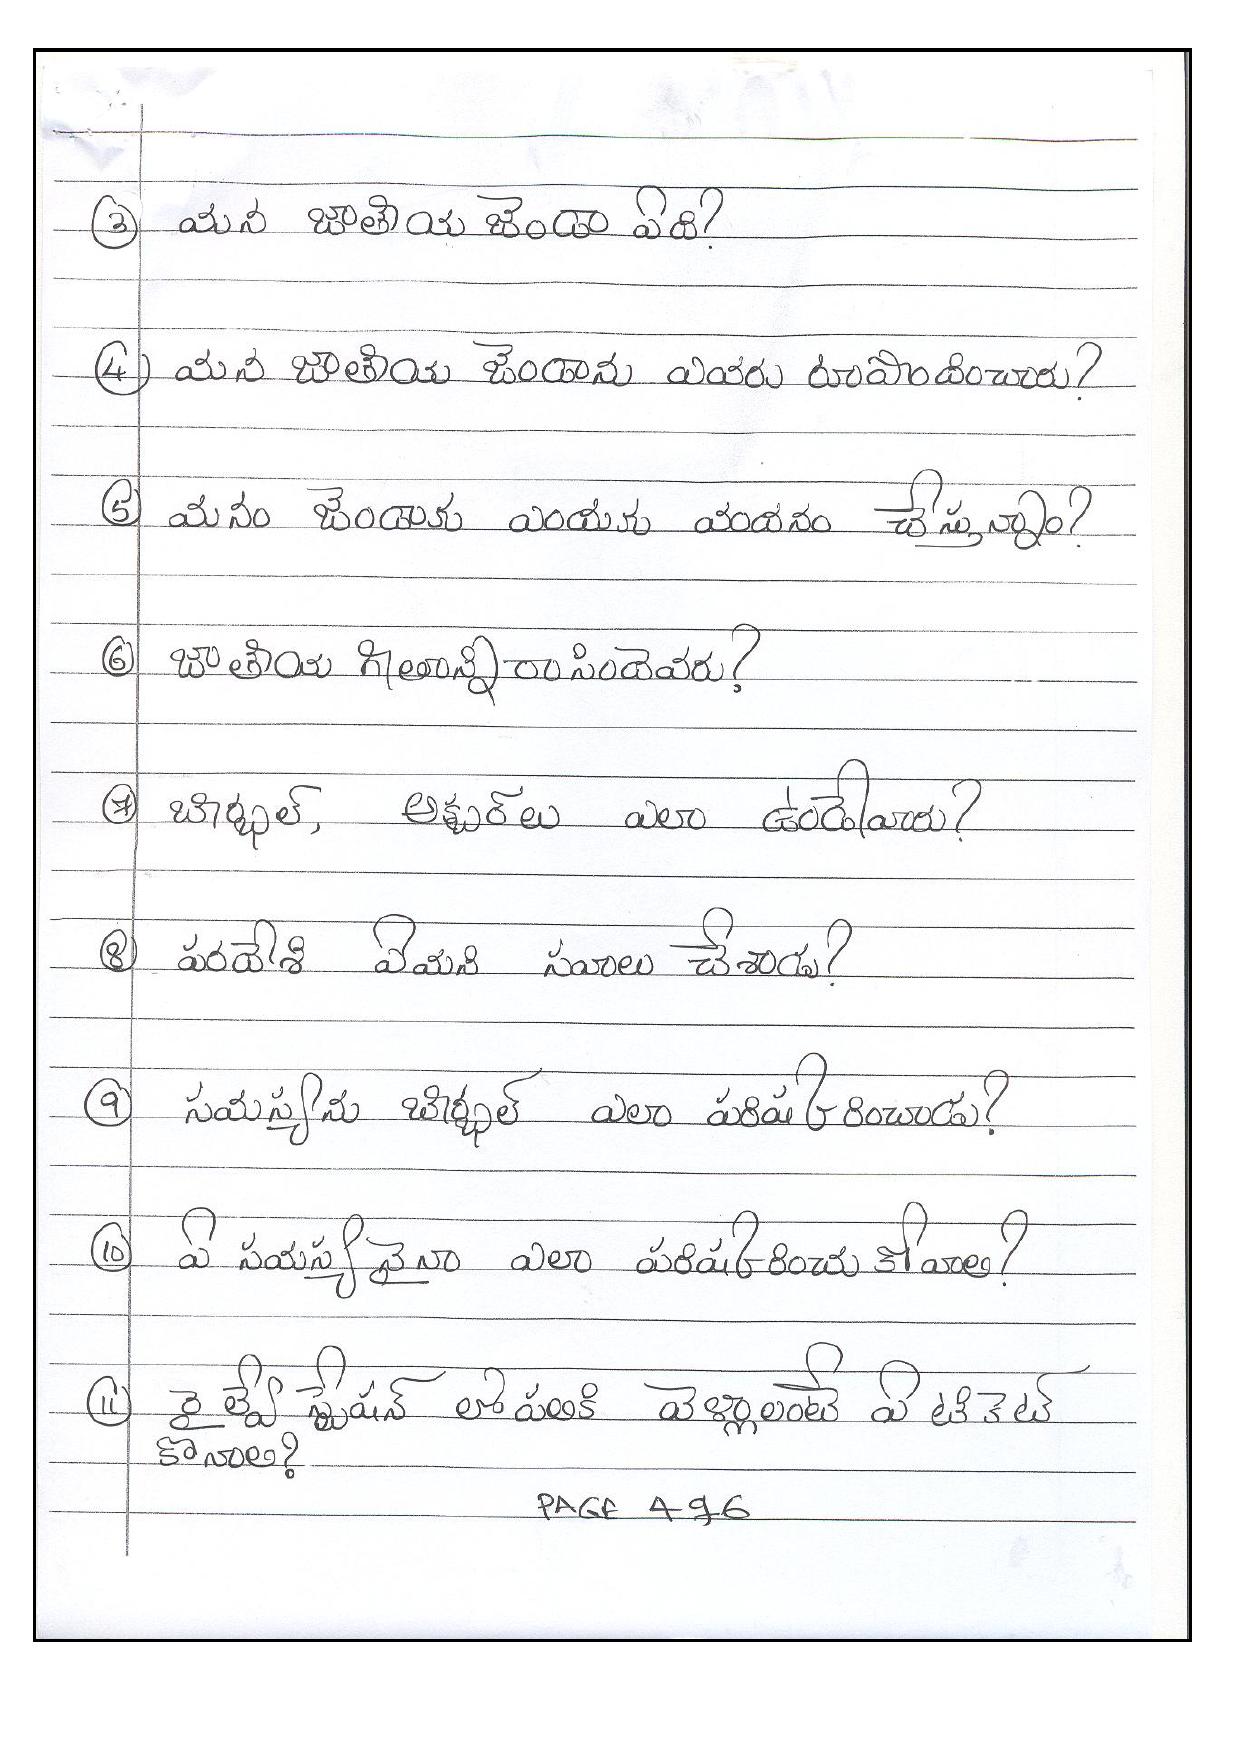 ③ మన జాతీయ జెండా ఏది?
④ మన జాతీయ జెండాను ఎవరు రూపొందించారు?
⑤ మనం జెండాకు ఎందుకు వందనం చేస్తున్నాం?
⑥ జాతీయ గీతాన్ని రాసిందెవరు?
⑦ బీర్బల్, అక్బర్‌లు ఎలా ఉండేవారు?
⑧ పరదేశి ఏమని సవాలు చేశాడు?
⑨ సమస్యను బీర్బల్ ఎలా పరిష్కరించాడు?
⑩ ఏ సమస్యనైనా ఎలా పరిష్కరించుకోవాలి?
⑪ రైల్వే స్టేషన్ లోపలికి వెళ్లాలంటే ఏ టికెట్
కొనాలి?
PAGE 496